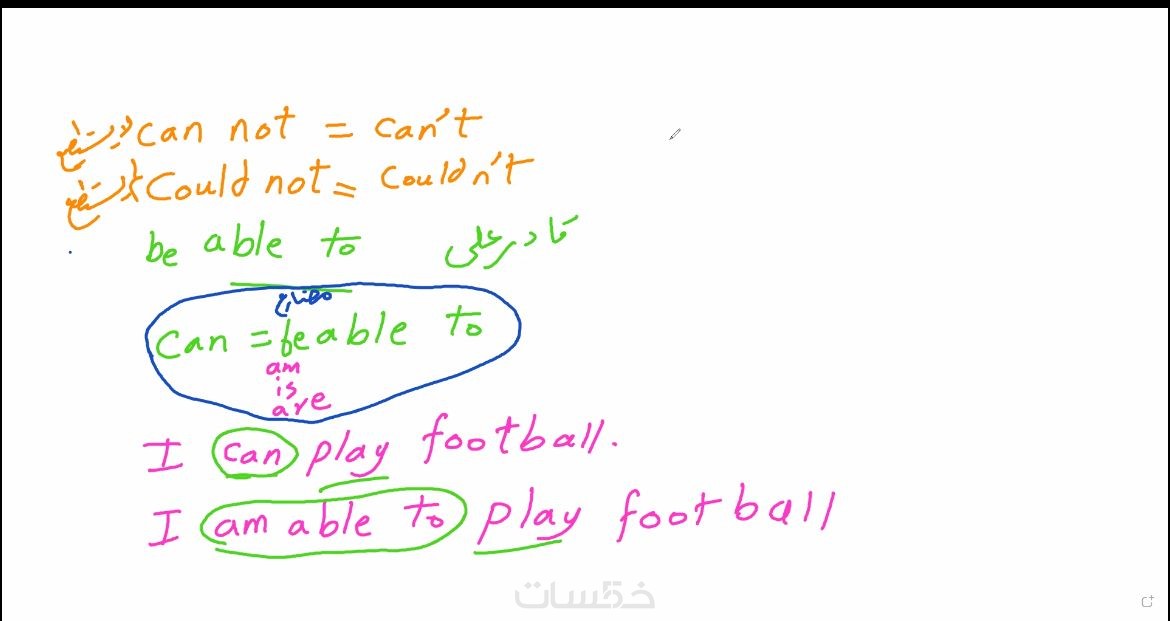 لا يستطيع can not = can't
لا يستطيع Could not = Couldn't
be able to قادر على
مضارع
can = be able to
am
is
are
I can play football.
I am able to play football
خمسات